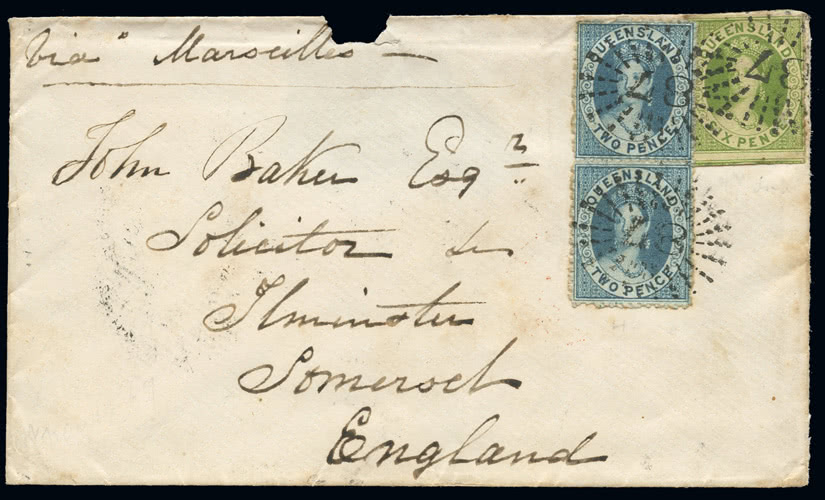 Via Marseilles
John Baker Esqr
Solicitor &c
Ilminster
Somerset
England
QUEENSLAND
TWO PENCE
QUEENSLAND
TWO PENCE
QUEENSLAND
SIX PENCE